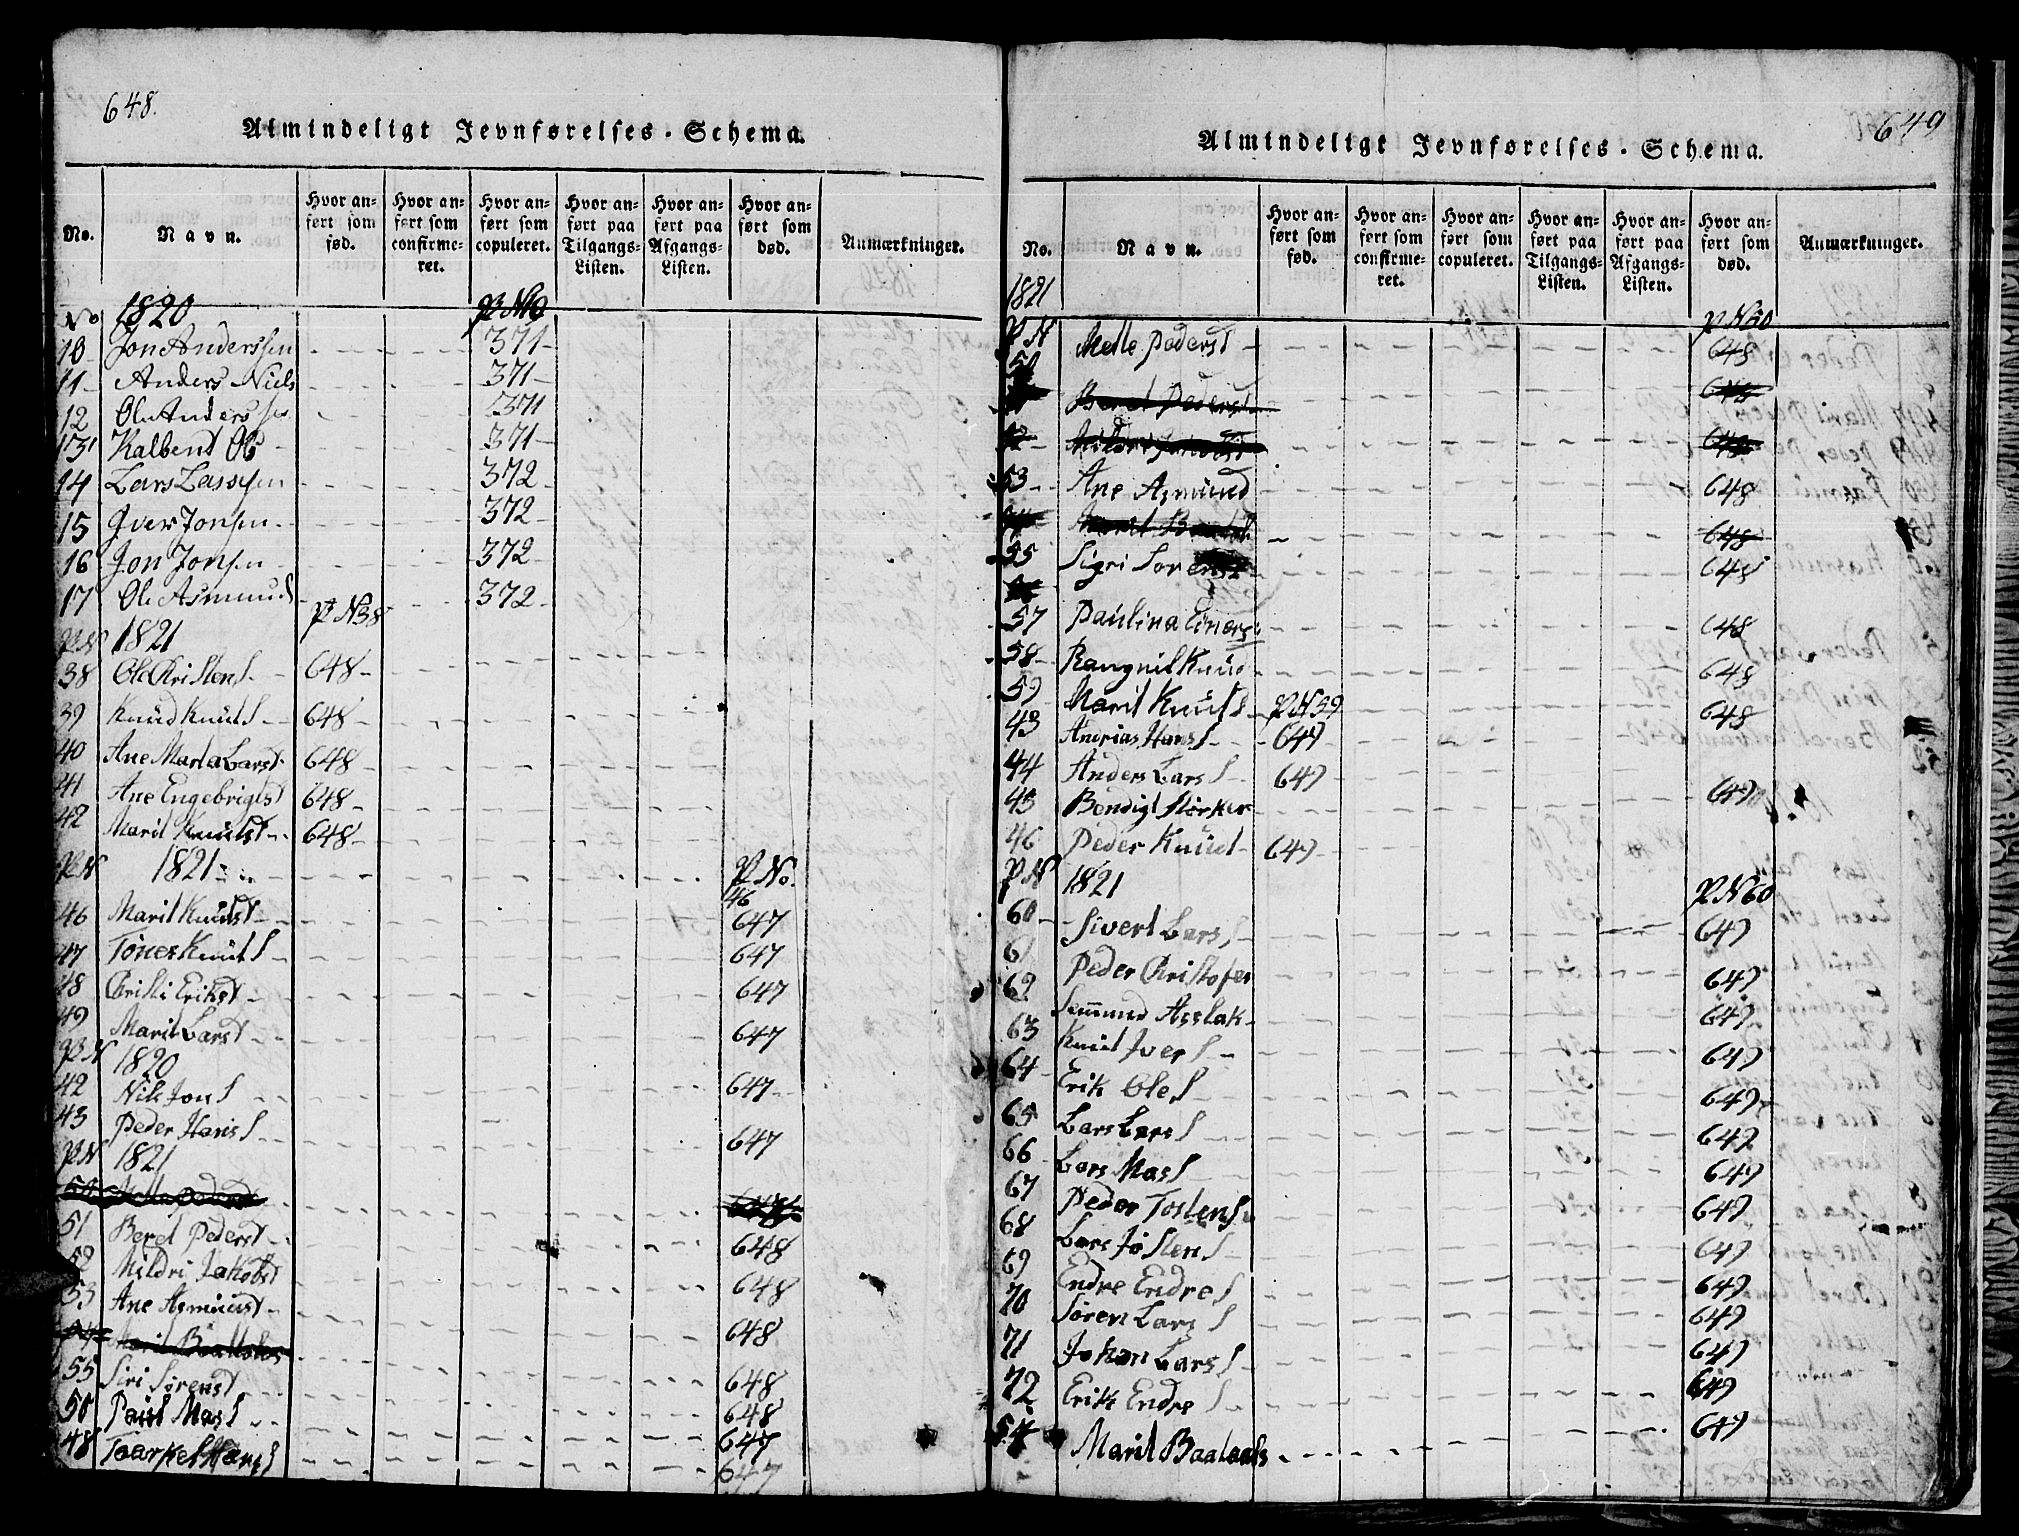 648.
Almindeligt Jevnførelses-Schema.
No.
Navn.
Hvor anført som fød.
Hvor anført som confirmeret.
Hvor anført som copuleret.
Hvor anført paa Tilgangs-Listen.
Hvor anført paa Afgangs-Listen.
Hvor anført som død.
Anmærkninger.
No 1820
10 Jon Anderssen 371
11 Anders Niels 371
12 Ole Anderssen 371
13 Kalbent Ols 371
14 Lars Lassesen 372
15 Iver Jonsen 372
16 Jon Jonsen 372
17 Ole Asmund 372
P N 1821 P N 38
38 Ole Kristens 648
39 Knud Knuts 648
40 Ane Maria Larst 648
41 Ane Engebrigtst 648
42 Marit Knutst 648
P N 1821 P No. 46
46 Marit Knutst 647
47 Tones Knuts 647
48 Christi Erikst 647
49 Marit Larst 647
P N 1820
42 Nils Jons 647
43 Peder Hans 647
P N 1821
50
51 Beret Pederst 648
52 Mildri Jakobst 648
53 Ane Asmunst 648
54 Marit Baallaks
55 Siri Sørenst 648
50 Paul Mas 648
48 Taarkel Hans 647
647
649
Almindeligt Jevnførelses-Schema.
No.
Navn.
Hvor anført som fød.
Hvor anført som confirmeret.
Hvor anført som copuleret.
Hvor anført paa Tilgangs-Listen.
Hvor anført paa Afgangs-Listen.
Hvor anført som død.
Anmærkninger.
1821
P N P N 50
50 Melle Pederst 648
Beret Pederst 648
52 Mildri Jakobst 648
53 Ane Asmund 648
Marit Baalak 648
55 Sigri Sørenst 648
57 Paulina Einers 648
58 Rangnil Knud 648
59 Marit Knuts P N 39 648
43 Andrias Hans 649
44 Anders Lars 649
45 Bendigt Størker 649
46 Peder Knud 649
P N 1821 P N 60
60 Sivert Lars 649
61 Peder Christofer 649
62 Semund Asslak 649
63 Knud Ivers 649
64 Erik Oles 649
65 Lars Lars 649
66 Lars Mas 649
67 Peder Tostens 649
68 Lars Jostens 649
69 Endre Endres 649
70 Søren Lars 649
71 Johan Lars 649
72 Erik Endre 649
54 Marit Baalaks 649